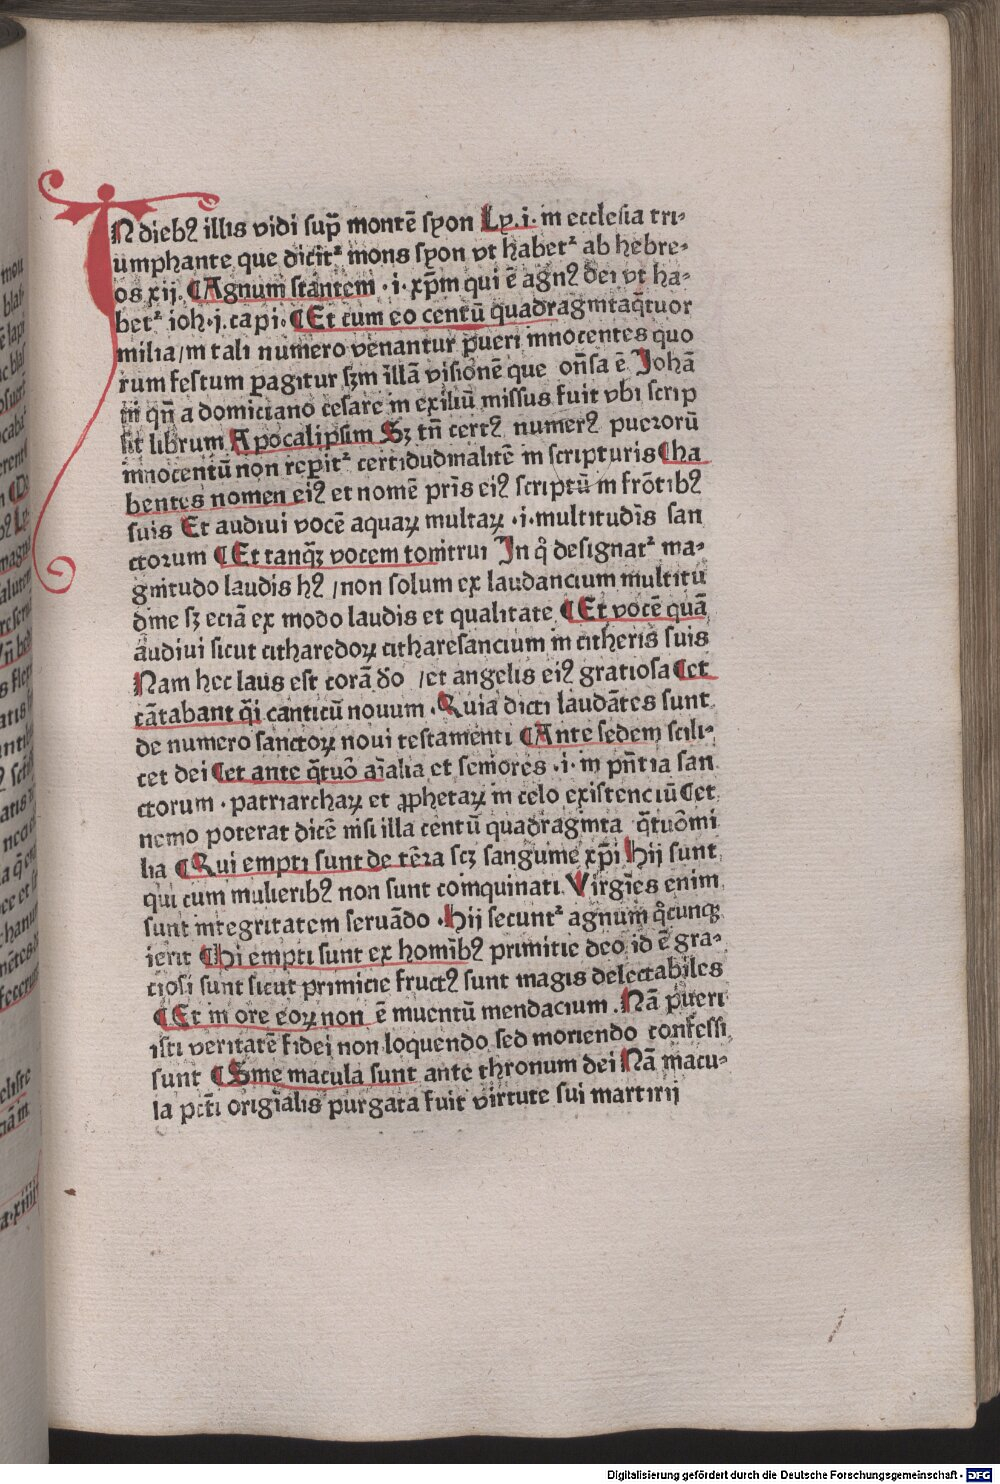 IN diebꝰ illis vidi sup̄ montē syon Ly.i. in ecclesia tri⸗
umphante que dicitᷣ mons syon vt habetᷣ ab hebre⸗
os xij. ⸿Agnum stantem .i. xp̄m qui ē agnꝰ dei vt ha⸗
betᷣ ioh.j.capi. ⸿Et cum eo centū quadragintaq̄tuor
milia/in tali numero venantur pueri innocentes quo
rum festum pagitur sꝫm illā visionē que on̄sa ē Johā
ni qn̄ a domiciano cesare in exiliū missus fuit vbi scrip
sit librum Apocalipsim Sꝫ tn̄ certꝰ numerꝰ puerorū
innocentū non reperitᷣ certidudinalitē in scripturis ⸿ha
bentes nomen eiꝰ et nomē pr̄is eiꝰ scriptū in frōtibꝰ
suis Et audiui vocē aquaꝝ multaꝝ .i. multitudīs san
ctorum ⸿Et tanqꝫ vocem tonitrui In qͦ designatᷣ ma⸗
gnitudo laudis hꝰ /non solum ex laudancium multitu
dine sꝫ eciā ex modo laudis et qualitate ⸿Et vocē quā
audiui sicut citharedoꝝ citharesancium in citheris suis
Nam hec laus est corā do /et angelis eiꝰ gratiosa ⸿et
cātabant q̄i canticū nouum .Quia dicti laudātes sunt
de numero sanctoꝝ noui testamenti ⸿Ante sedem scili⸗
cet dei ⸿et ante q̄tuō aīalia et seniores .i. in pn̄tia san
ctorum . patriarchaꝝ et ꝓphetaꝝ in celo existenciū ⸿et
nemo poterat dicē nisi illa centū quadraginta q̄tuōmi
lia ⸿Qui empti sunt de tēra scꝫ sanguine xp̄i Hij sunt
qui cum mulieribꝰ non sunt coinquinati. Virgīes enim
sunt integritatem seruādo .Hij secuntᷣ agnum qͦcunqꝫ
ierit ⸿Hi empti sunt ex homībꝰ primitie deo id ē gra⸗
ciosi sunt sicut primicie fructꝰ sunt magis delectabiles
⸿Et in ore eoꝝ non ē inuentū mendacium .Nā pueri
isti veritatē fidei non loquendo sed moriendo confessi
sunt ⸿Sine macula sunt ante thronum dei Nā macu⸗
la pcti origīalis purgata fuit virtute sui martirij
Digitalisierung gefördert durch die Deutsche Forschungsgemeinschaft - DFG